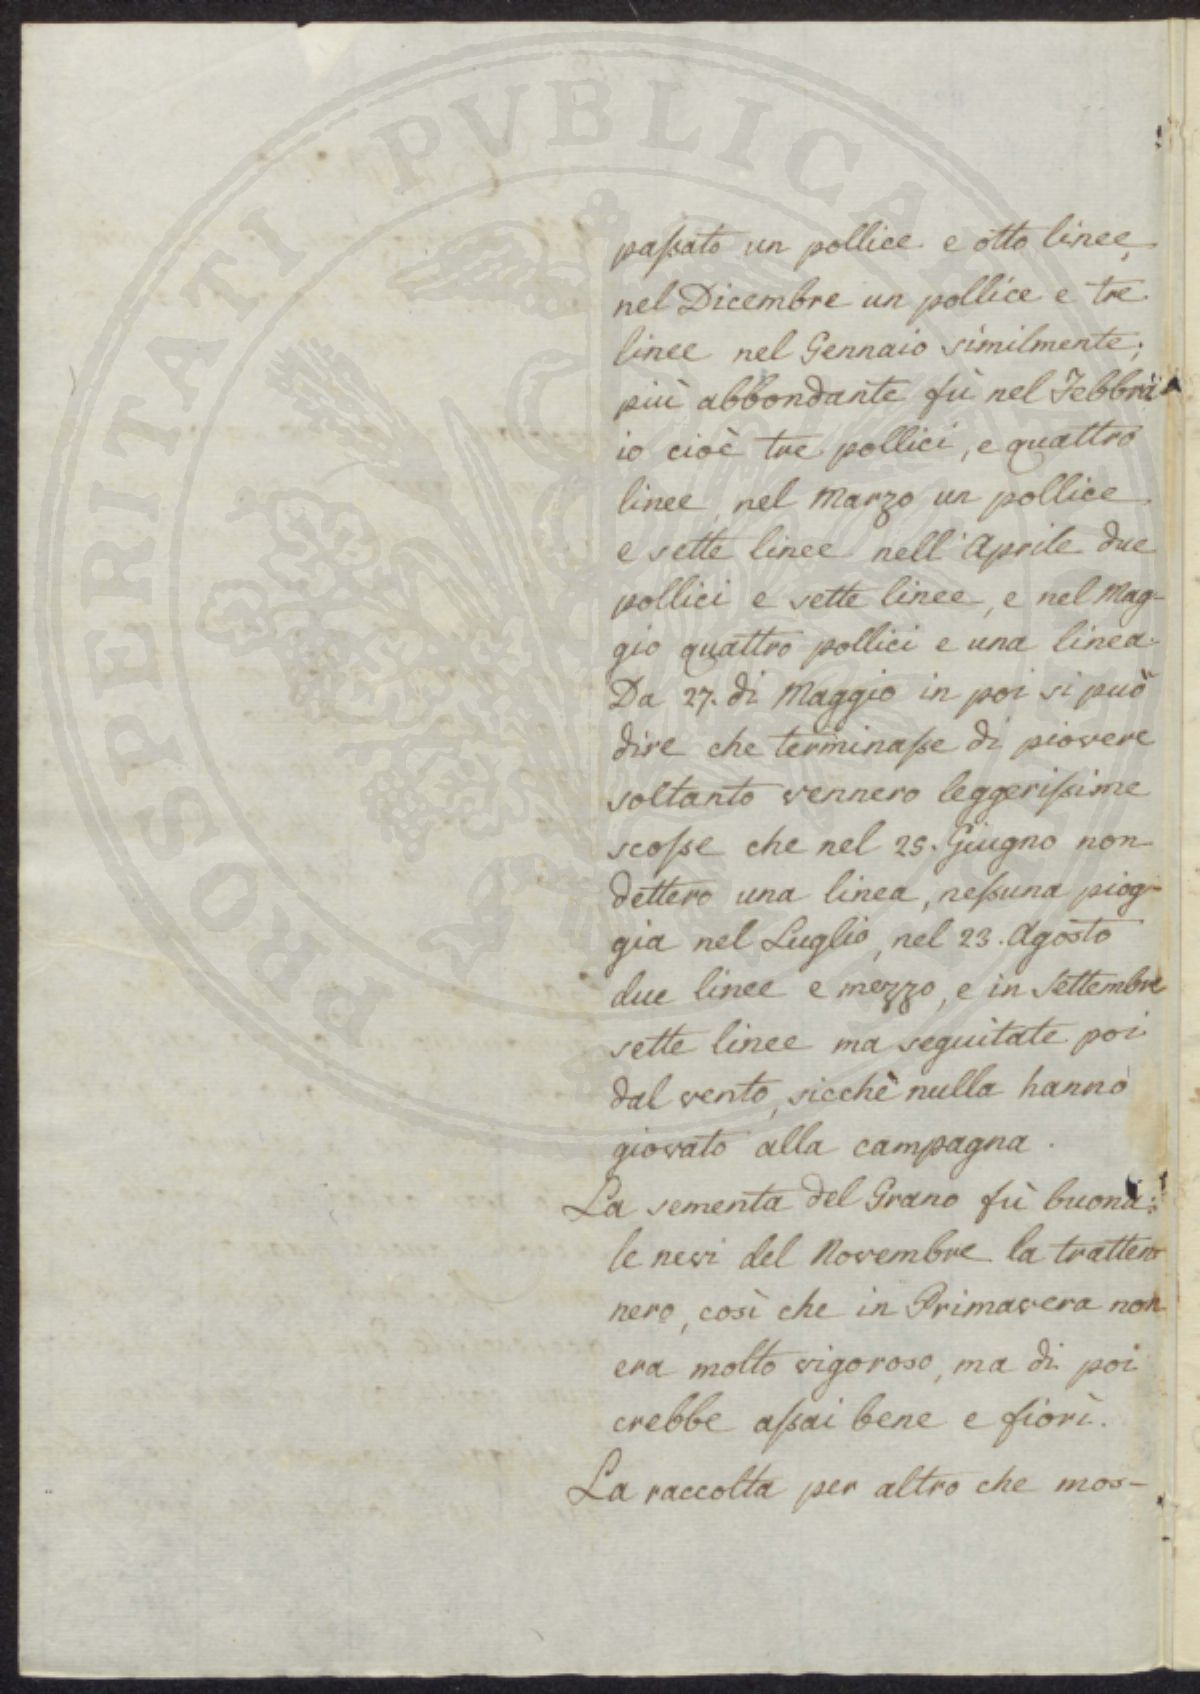 PROSPERITATI PVBLICAE
paſsato un pollice e otto linee,
nel Dicembre un pollice e tre
linee nel Gennaio similmente;
più abbondante fù nel Febbra
io cioè tre pollici, e quattro
linee, nel Marzo un pollice
e sette linee nell'Aprile due
pollici e sette linee, e nel Mag-
gio quattro pollici e una linea.
Da 27. di Maggio in poi si può
dire che terminaſse di piovere
soltanto vennero leggeriſsime
scoſse che nel 25. Giugno non
dettero una linea, neſsuna piog-
gia nel Luglio, nel 23. Agosto
due linee e mezzo, e in Settembre
sette linee ma seguitate poi
dal vento, sicchè nulla hanno
giovato alla campagna.
La sementa del Grano fù buona:
le nevi del Novembre la tratten
nero, così che in Primavera non
era molto vigoroso, ma di poi
crebbe aſsai bene e fiorì.
La raccolta per altro che mos-